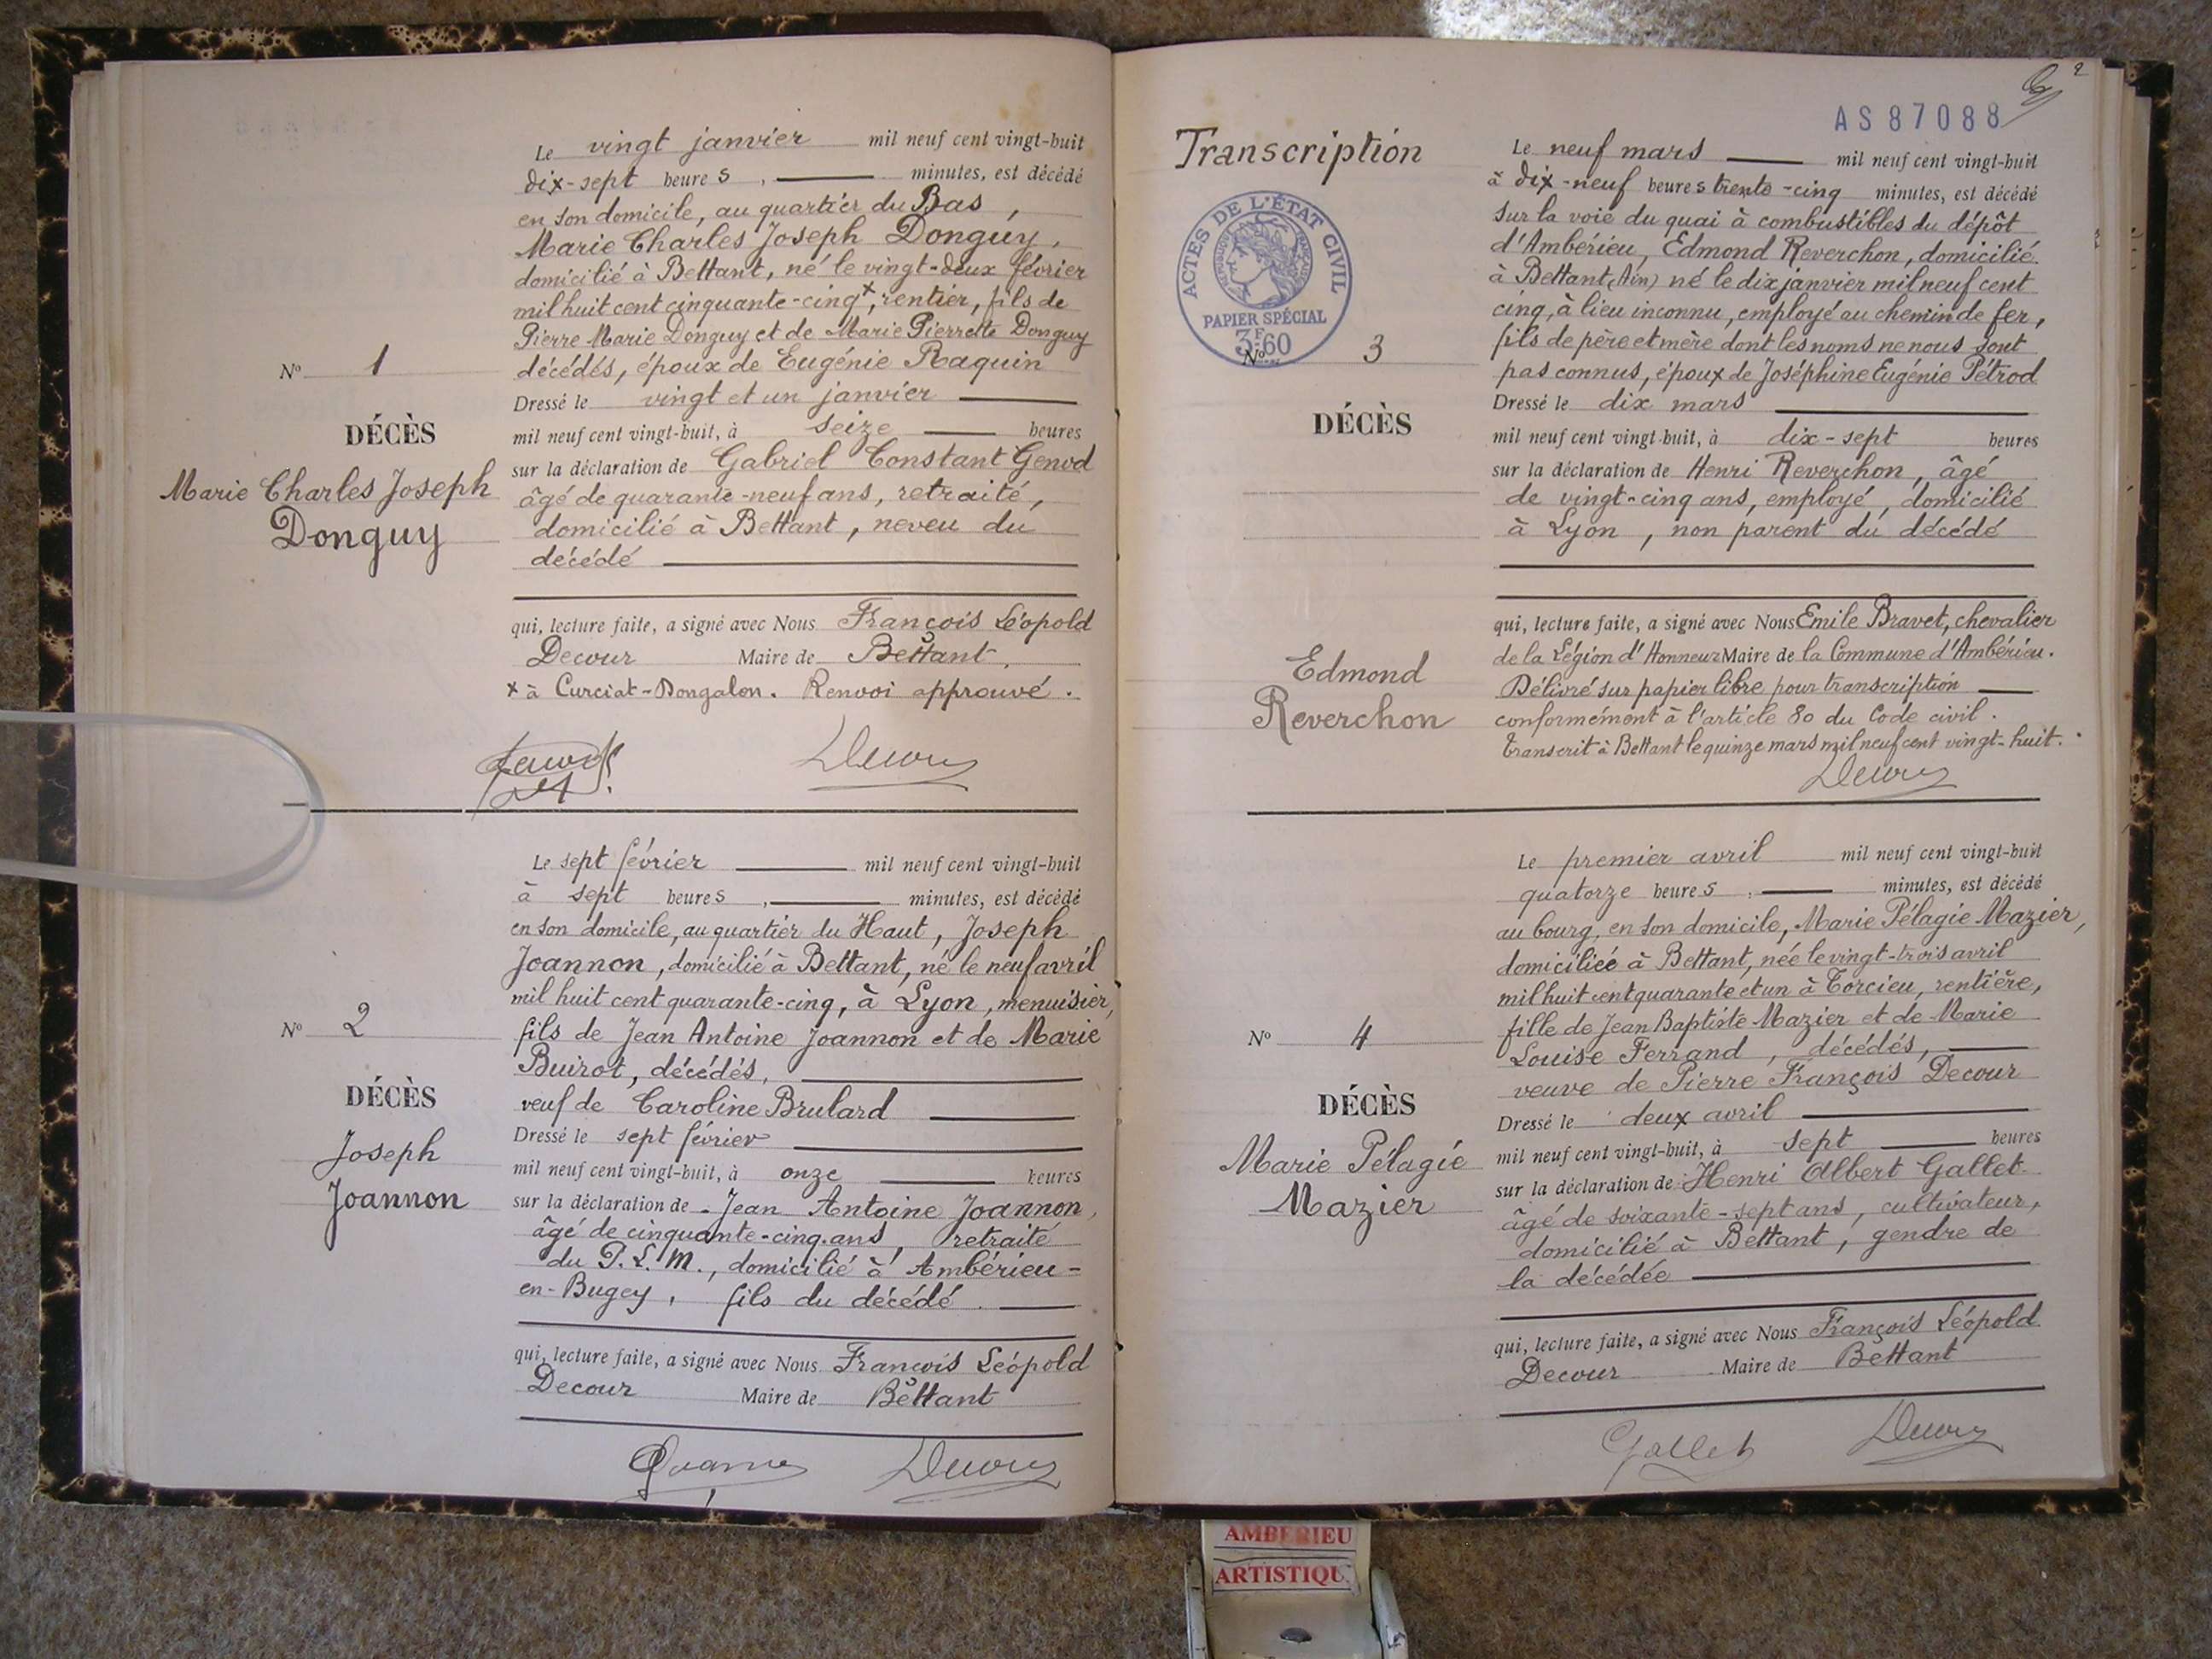 Le vingt janvier mil neuf cent vingt-huit
dix-sept heures, minutes, est décédé
en son domicile, au quartier du Bas,
Marie Charles Joseph Donguy,
domicilié à Bettant, né le vingt-deux février
mil huit cent cinquante-cinq x, rentier, fils de
Pierre Marie Donguy et de Marie Pierrette Donguy
décédés, époux de Eugénie Raquin
Dressé le vingt et un janvier
mil neuf cent vingt-huit, à seize heures
sur la déclaration de Gabriel Constant Genod
âgé de quarante-neuf ans, retraité,
domicilié à Bettant, neveu du
décédé
qui, lecture faite, a signé avec Nous François Léopold
Decour Maire de Bettant.
x à Curciat-Dongalon. Renvoi approuvé.
Nº 1
DÉCÈS
Marie Charles Joseph
Donguy
Decour
Le sept février mil neuf cent vingt-huit
à sept heures, minutes, est décédé
en son domicile, au quartier du Haut, Joseph
Joannon, domicilié à Bettant, né le neuf avril
mil huit cent quarante-cinq, à Lyon, menuisier,
fils de Jean Antoine Joannon et de Marie
Buirot, décédés,
veuf de Caroline Brulard
Dressé le sept février
mil neuf cent vingt-huit, à onze heures
sur la déclaration de Jean Antoine Joannon,
âgé de cinquante-cinq ans, retraité
du P. L. M., domicilié à Ambérieu-
en-Bugey, fils du décédé.
qui, lecture faite, a signé avec Nous François Léopold
Decour Maire de Bettant
Nº 2
DÉCÈS
Joseph
Joannon
Decour
2
AS87088
Transcription
ACTES DE L'ÉTAT CIVIL
RÉPUBLIQUE FRANÇAISE
PAPIER SPÉCIAL
3F60
Nº 3
DÉCÈS
Edmond
Reverchon
Le neuf mars mil neuf cent vingt-huit
à dix-neuf heures trente-cinq minutes, est décédé
sur la voie du quai à combustibles du dépôt
d'Ambérieu, Edmond Reverchon, domicilié
à Bettant (Ain) né le dix janvier mil neuf cent
cinq, à lieu inconnu, employé au chemin de fer,
fils de père et mère dont les noms ne nous sont
pas connus, époux de Joséphine Eugénie Pétrod
Dressé le dix mars
mil neuf cent vingt-huit, à dix-sept heures
sur la déclaration de Henri Reverchon, âgé
de vingt-cinq ans, employé, domicilié
à Lyon, non parent du décédé
qui, lecture faite, a signé avec Nous Emile Bravet, chevalier
de la Légion d'Honneur Maire de la Commune d'Ambérieu.
Délivré sur papier libre pour transcription
conformément à l'article 80 du Code civil.
Transcrit à Bettant le quinze mars mil neuf cent vingt-huit.
Decour
Le premier avril mil neuf cent vingt-huit
quatorze heures, minutes, est décédé
au bourg, en son domicile, Marie Pélagie Mazier,
domiciliée à Bettant, née le vingt-trois avril
mil huit cent quarante et un à Torcieu, rentière,
fille de Jean Baptiste Mazier et de Marie
Louise Ferrand, décédés,
veuve de Pierre François Decour
Dressé le deux avril
mil neuf cent vingt-huit, à sept heures
sur la déclaration de Henri Albert Gallet
âgé de soixante-sept ans, cultivateur,
domicilié à Bettant, gendre de
la décédée
qui, lecture faite, a signé avec Nous François Léopold
Decour Maire de Bettant
Nº 4
DÉCÈS
Marie Pélagie
Mazier
Gallet Decour
AMBERIEU
ARTISTIQU